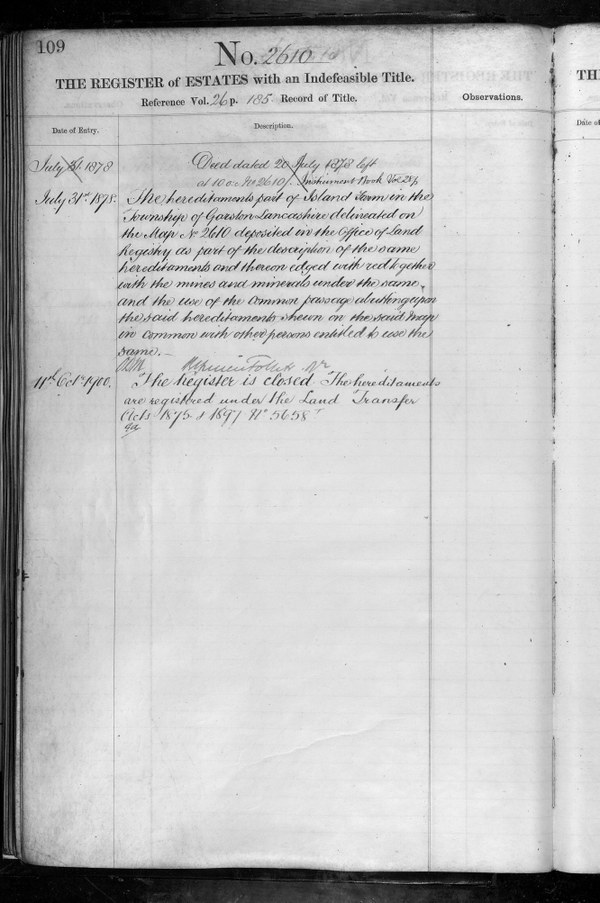 109
No. 2610
THE REGISTER of ESTATES with an Indefeasible Title.
Reference Vol. 26 p. 185 Record of Title.
Observations.
Date of Entry.
Description.
July 1878
Deed dated 20 July 1878 left
at 10 o'c No 2610. Instrument Book Vol 28 p
July 31st 1878.
The hereditaments part of Island Farm in the
Township of Garston Lancashire delineated on
the Map No 2610 deposited in the Office of Land
Registry as part of the description of the same
hereditaments and thereon edged with red together
with the mines and minerals under the same
and the use of the Common passage abutting upon
the said hereditaments shewn on the said Map
in common with other persons entitled to use the
same. —
Follett
11th Oct. 1900.
The Register is closed The hereditaments
are registered under the Land Transfer
Acts 1875 & 1897 No 5658
TH
Date of